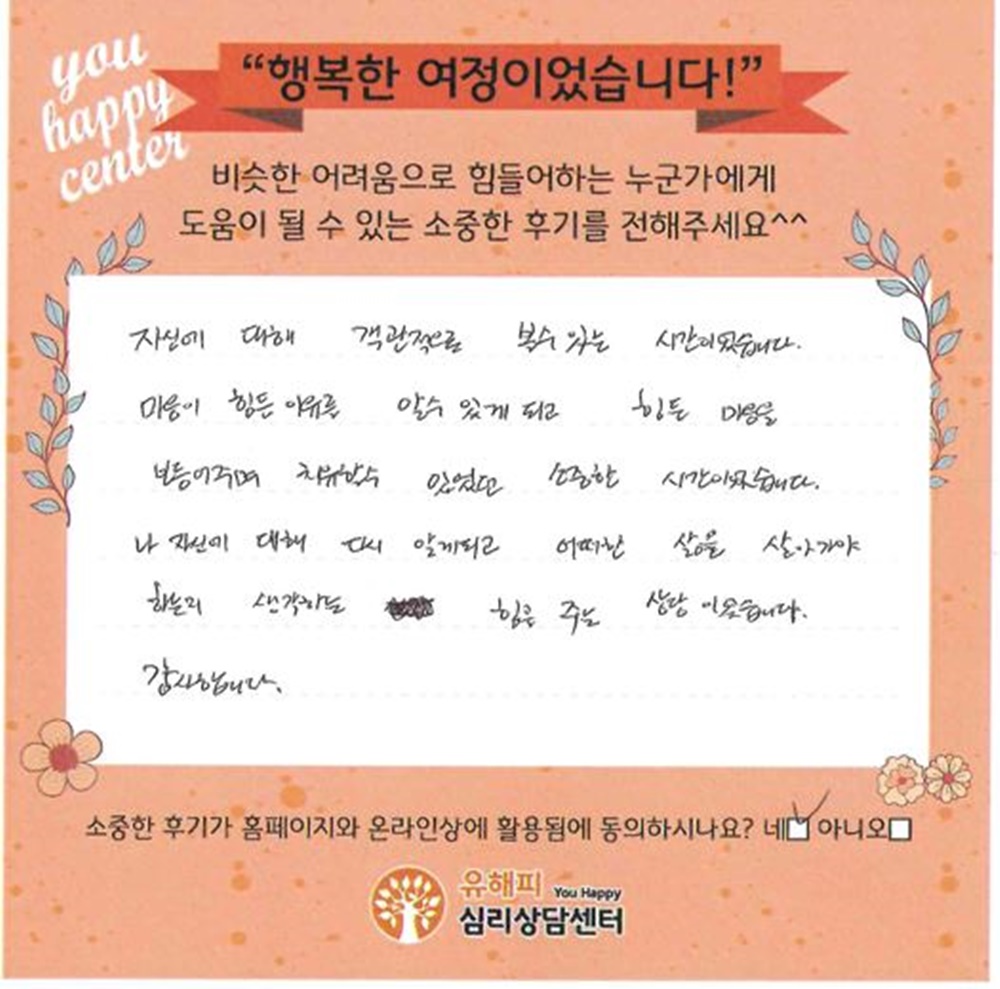 you
happy
center
“행복한 여정이었습니다!”
비슷한 어려움으로 힘들어하는 누군가에게
도움이 될 수 있는 소중한 후기를 전해주세요^^
자신에 대해 객관적으로 볼수 있는 시간이었습니다.
마음이 힘든 이유를 알수 있게 되고 힘든 마음을
보듬어주며 치유할수 있었던 소중한 시간이었습니다.
나 자신에 대해 다시 알게되고 어떠한 삶을 살아가야
하는지 생각하는 힘을 주는 상담 이었습니다.
감사합니다.
소중한 후기가 홈페이지와 온라인상에 활용됨에 동의하시나요? 네 아니오
유해피 You Happy
심리상담센터